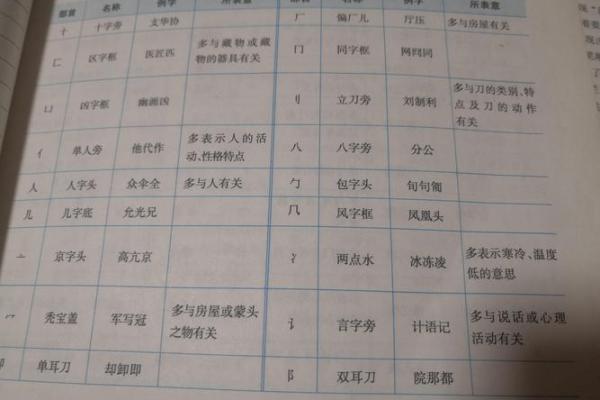 部首 名称 例字 所表意 部首 名称 例字 所表意
十 十字旁 支华协 厂 偏厂儿 厅压 多与房屋有关
匚 区字框 医匠匹 多与藏物或藏 冂 同字框 网冈同
物的器具有关
凵 凶字框 幽画凶 刂 立刀旁 刘制利 多与刀的类别、特
点及刀的动作
有关
亻 单人旁 他代作 多表示人的活 八 八字旁 分公
动、性格特点
人 人字头 众伞全 多与人有关 勹 包字头 句旬匍
儿 儿字底 允光兄 几 风字框 凤凰头
亠 京字头 高亢京 冫 两点水 冰冻凌 多表示寒冷、温度
低的意思
冖 秃宝盖 军写冠 多与房屋或蒙头 讠 言字旁 计语记 多与说话或心理
之物有关 活动有关
卩 单耳刀 却卸即 阝 双耳刀 院那都